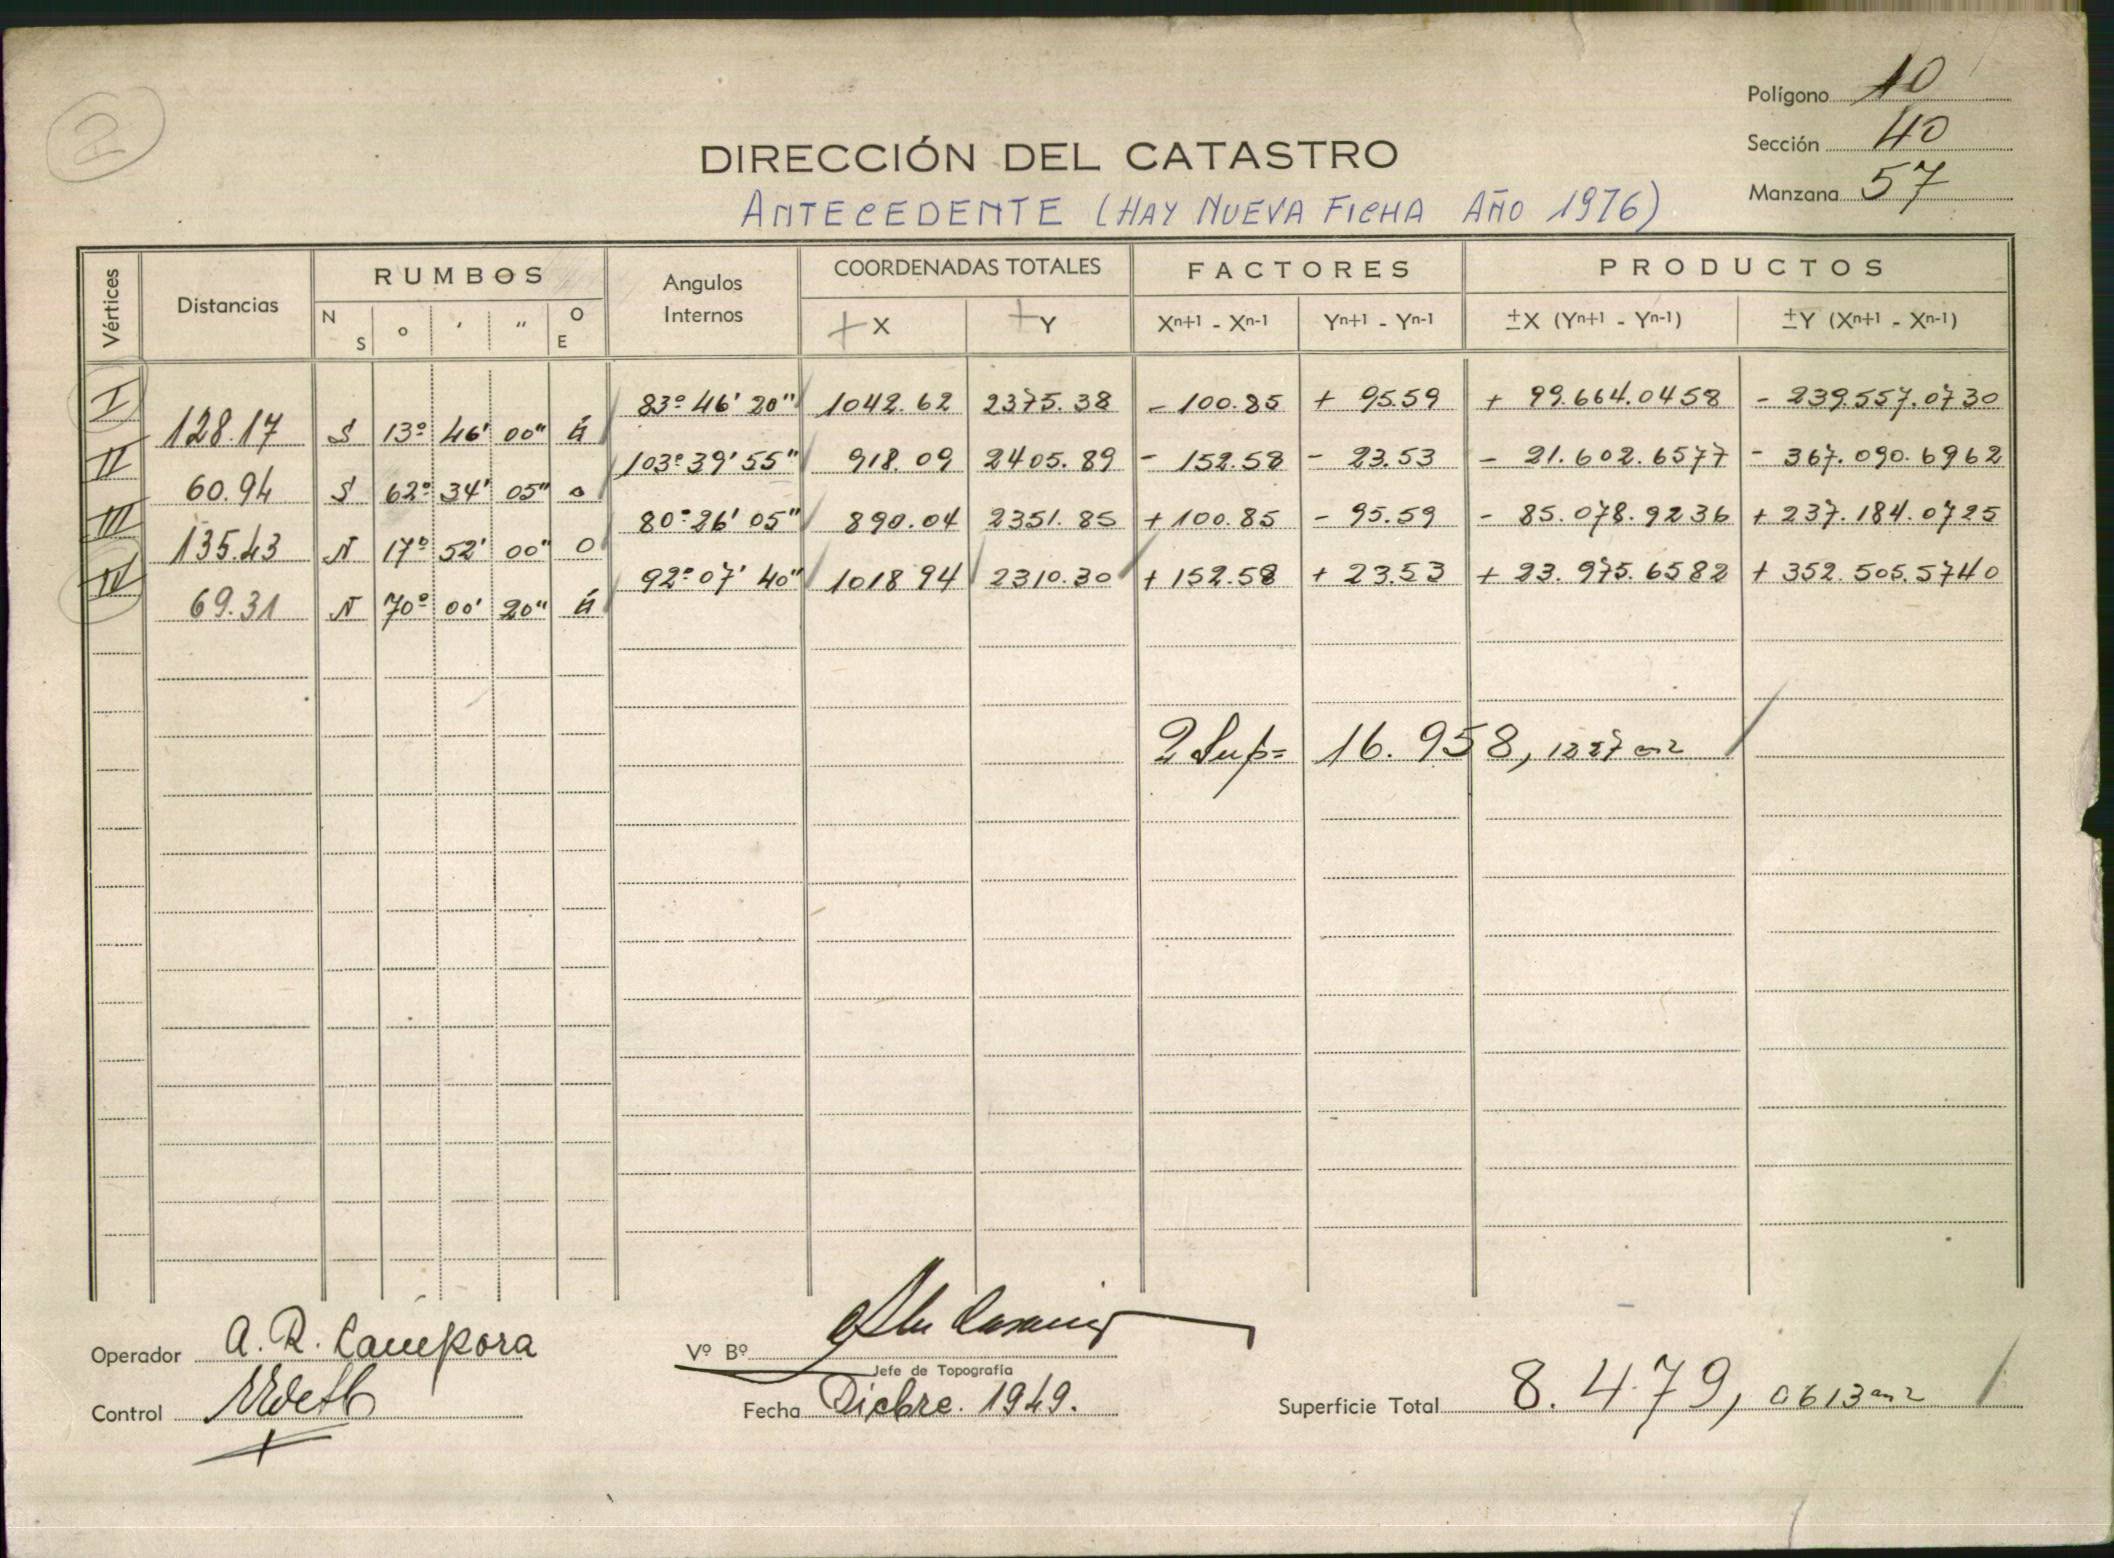 II
Polígono 10
Sección 40
Manzana 57
DIRECCIÓN DEL CATASTRO
ANTECEDENTE (HAY NUEVA FICHA AÑO 1976)
Vértices Distancias RUMBOS Angulos Internos COORDENADAS TOTALES FACTORES PRODUCTOS
N S ° ' " O E + X + Y Xn+1 - Xn-1 Yn+1 - Yn-1 ±X (Yn+1 - Yn-1) ±Y (Xn+1 - Xn-1)
I 83º 46' 20" 1042.62 2375.38 - 100.85 + 95.59 + 99.664.0458 - 239.557.0730
128.17 S 13º 46' 00" E
II 103º 39' 55" 918.09 2405.89 - 152.58 - 23.53 - 21.602.6577 - 367.090.6962
60.94 S 62º 34' 05" O
III 80º 26' 05" 890.04 2351.85 + 100.85 - 95.59 - 85.078.9236 + 237.184.0725
135.43 N 17º 52' 00" O
IV 92º 07' 40" 1018.94 2310.30 + 152.58 + 23.53 + 23.975.6582 + 352.505.5740
69.31 N 70º 00' 20" E
2 Sup= 16.958,1227 m2
Operador A. R. Campora
Vº Bº
Jefe de Topografía
Control
Fecha Dicbre. 1949.
Superficie Total 8.479,0613 m2